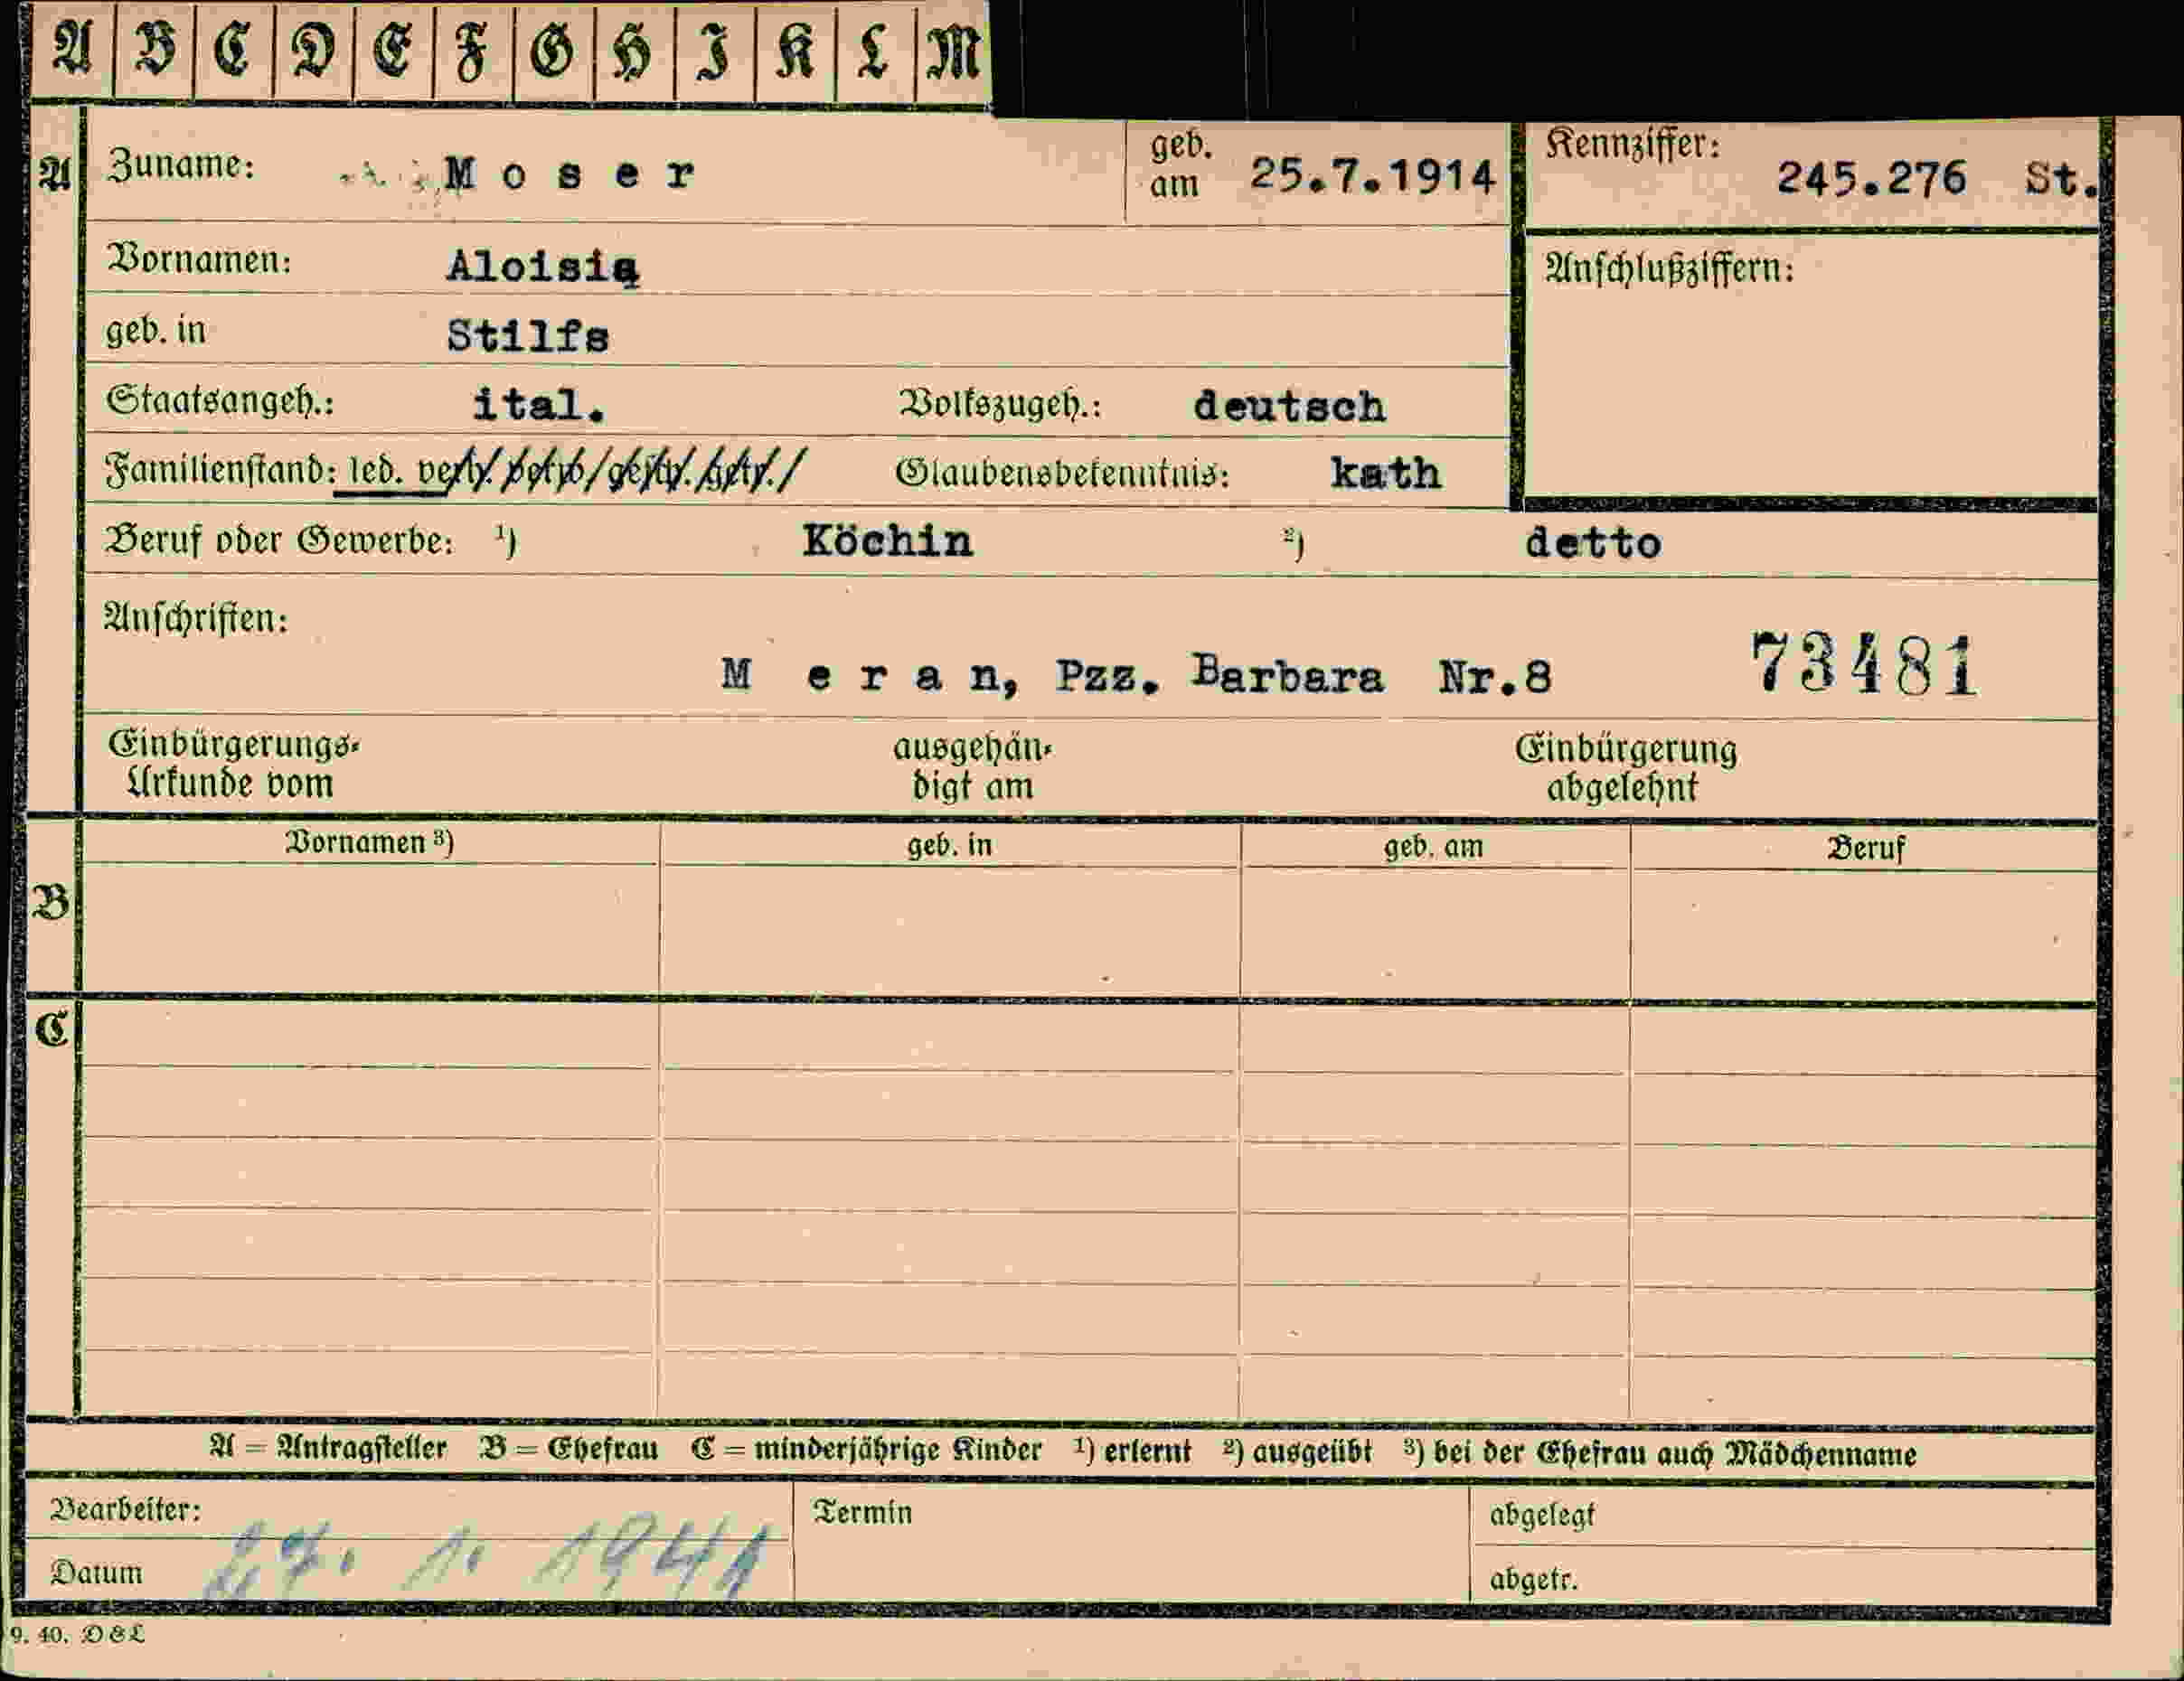 A B C D E F G H I K L M
A Zuname: Moser geb. am 25.7.1914 Kennziffer: 245.276 St.
Vornamen: Aloisia Anschlußziffern:
geb. in Stilfs
Staatsangeh.: ital. Volkszugeh.: deutsch
Familienstand: led. Glaubensbekenntnis: kath
Beruf oder Gewerbe: ¹) Köchin ²) detto
Anschriften:
Meran, Pzz. Barbara Nr.8 73481
Einbürgerungs- ausgehän- Einbürgerung
Urkunde vom digt am abgelehnt
Vornamen ³) geb. in geb. am Beruf
B
C
A = Antragsteller B = Ehefrau C = minderjährige Kinder ¹) erlernt ²) ausgeübt ³) bei der Ehefrau auch Mädchenname
Bearbeiter: Termin abgelegt
Datum 27. 1. 1941 abgetr.
9. 40. D&L